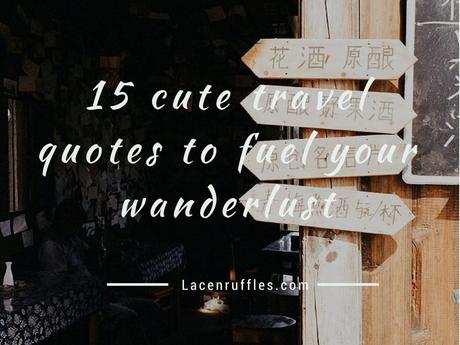 花酒 原酿
15 cute travel
quotes to fuel your
wanderlust
果酒
片
酒 /杯
Lacenruffles.com